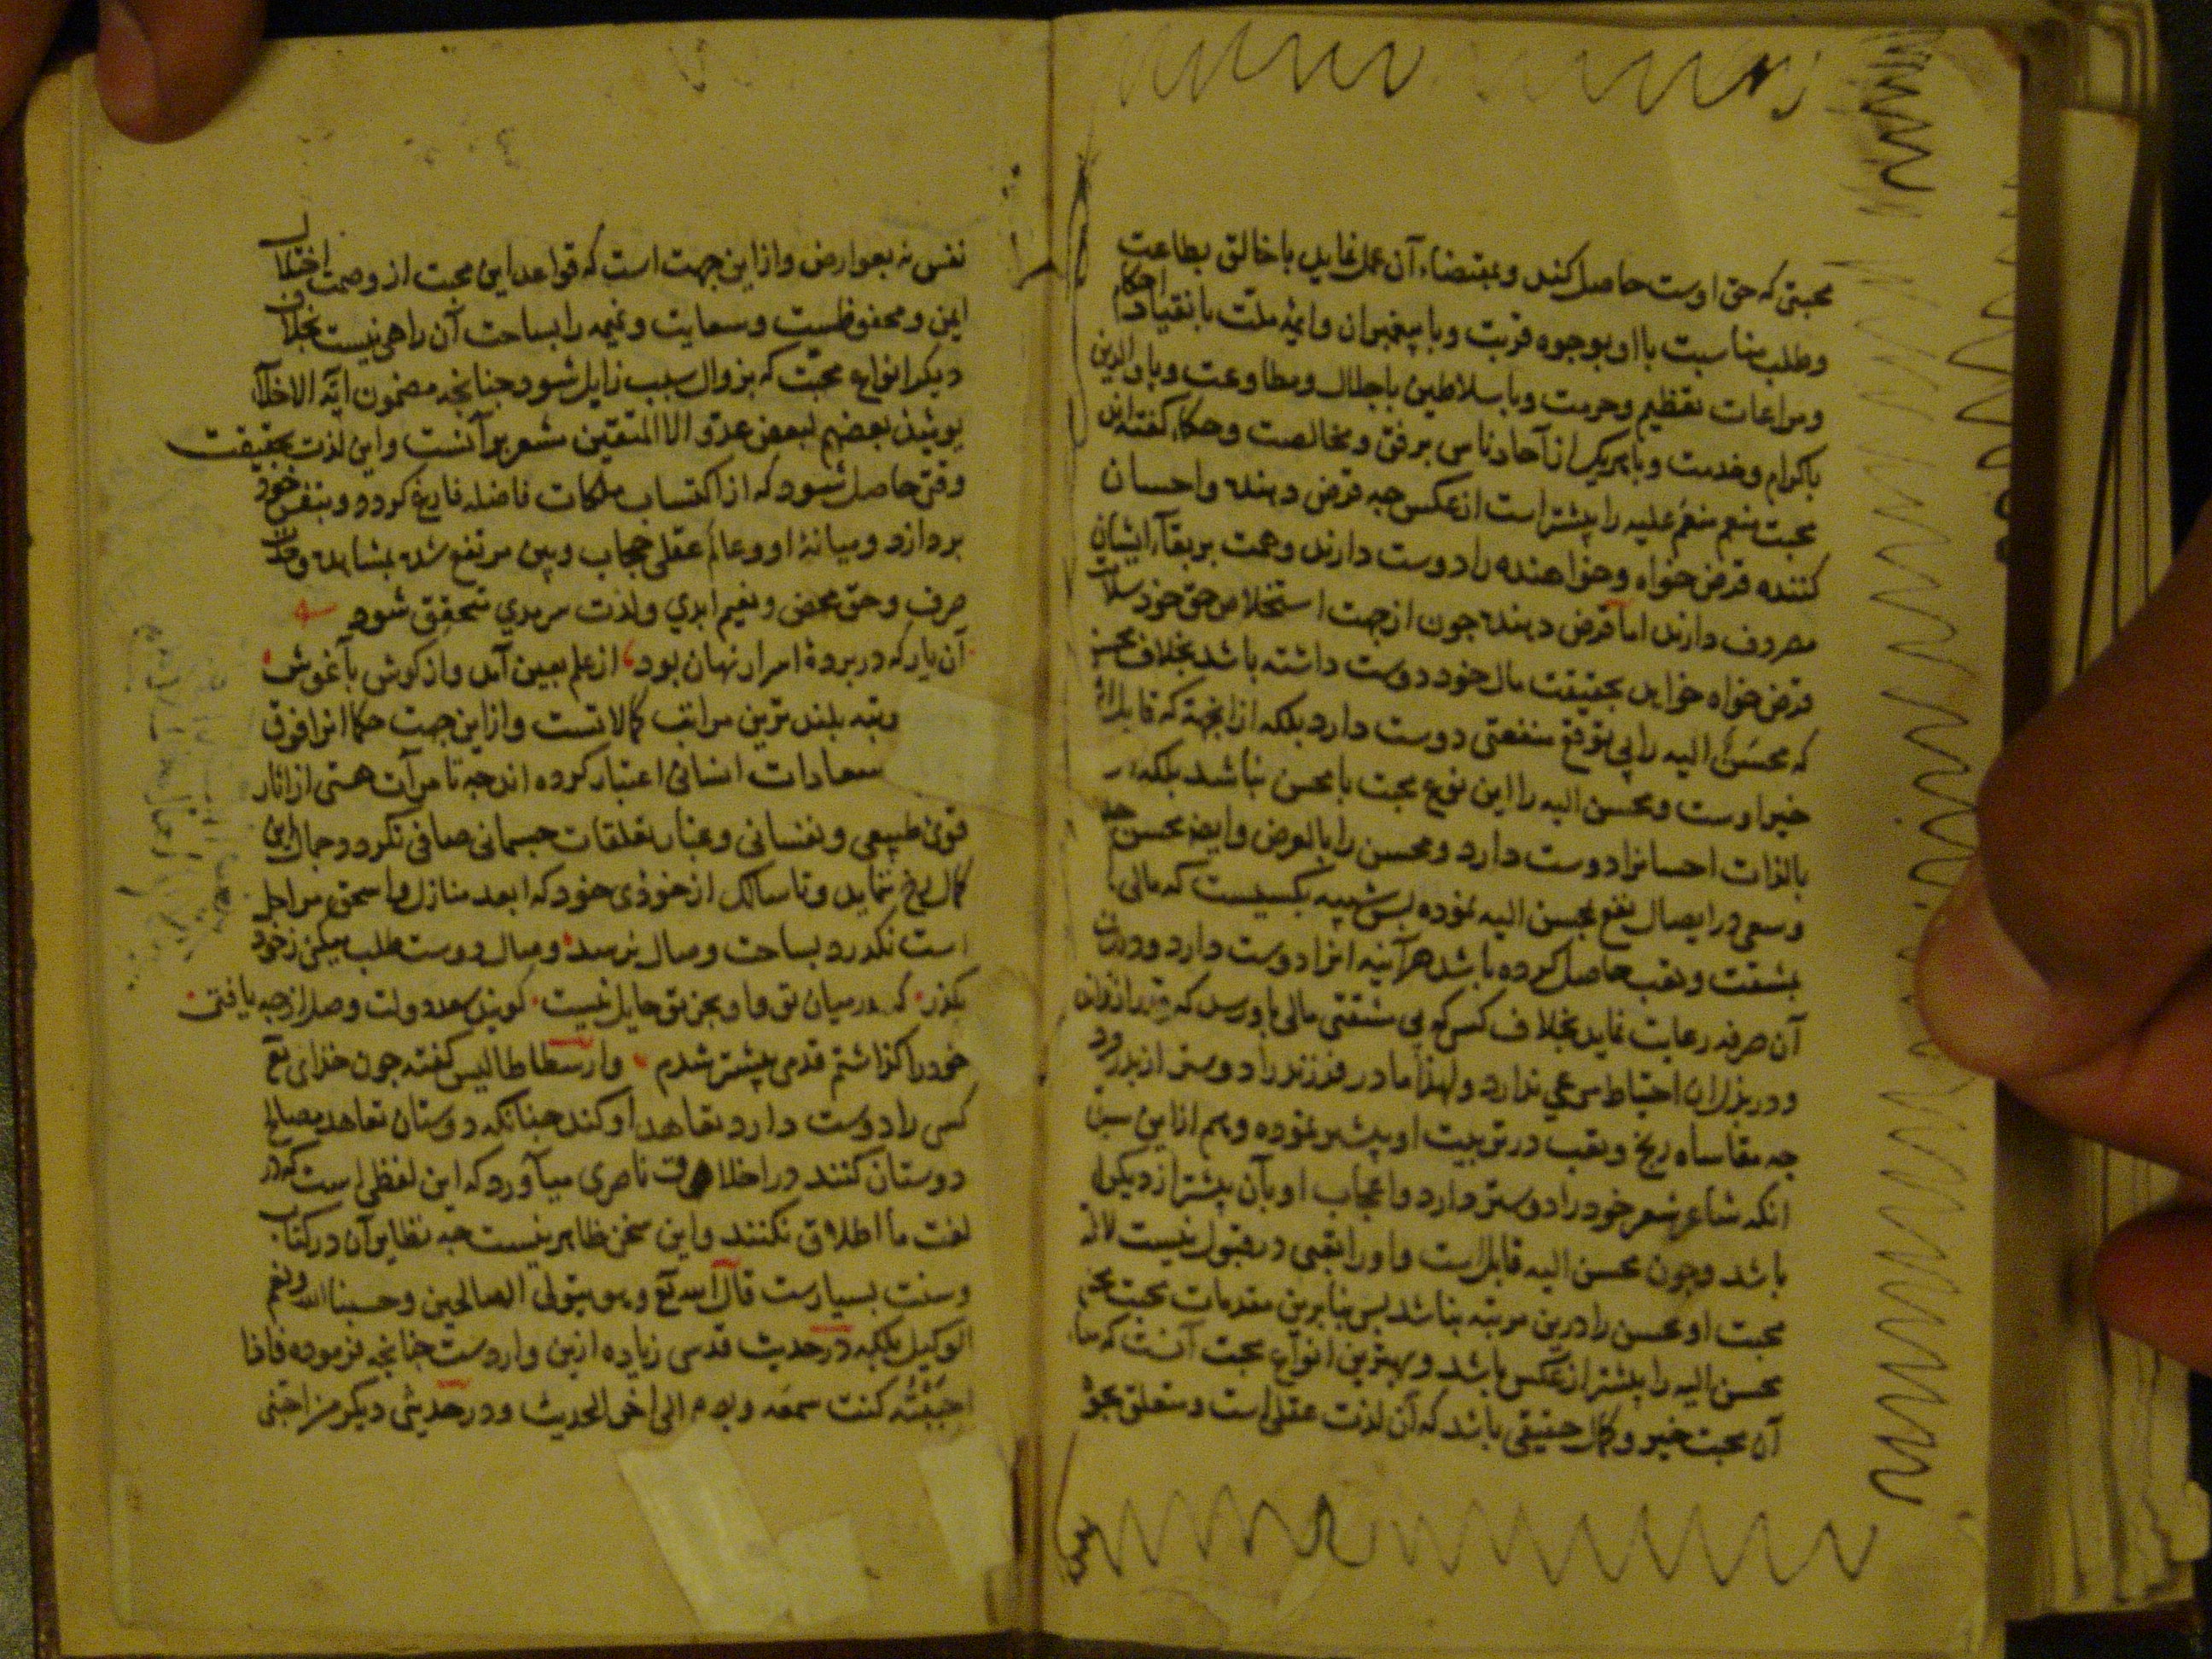 محبتی که حق اوست حاصل کند و بمقتضاء آن عمل نماید با خالق بطاعت
وطلب مناسبت با او بوجوه قربت و با پیغمبران و ایمهٔ ملت بانقیاد احکام
ومراعات تعظیم وحرمت وبا سلاطین باجلال ومطاوعت وبا والدین
باکرام وخدمت وبا هریک از آحاد ناس برفق ومخالصت وحکماء گفته اند
محبت منعم منعم علیه را بیشتر است از عکس جه قرض دهنده واحسان
کننده قرض خواه وخواهنده را دوست دارند وهمت بر بقآء ایشان
مصروف دارند اما قرض دهنده جون از جهت استخلاص حق خود سلامت
قرض خواه خواهد بحقیقت مال خود دوست داشته باشد بخلاف محسن
که محسن الیه را بی توقع منفعتی دوست دارد بلکه ازانجهة که قابل اثر
خیر اوست ومحسن الیه را این نوع محبت با محسن نباشد بلکه او
بالذات احسانرا دوست دارد ومحسن را بالعرض وایضا محسن جد
وسعی در ایصال نفع بمحسن الیه نموده بس شبیه بکسیست که مالی
بمشقت وتعب حاصل کرده باشد هرآینه انرا دوست دارد ودر
آن صرفه رعایت نماید بخلاف کسی که بی مشقتی مالی باو رسد که قدر آن نداند
ودر بذل ان احتیاط مرعی ندارد ولهذا مادر فرزند را دوستر از بدر دارد
جه مقاساه رنج وتعب در تربیت او بیشتر نموده وهم ازاین سبب
انکه شاعر شعر خود را دوستر دارد واعجاب او بآن بیشتر از دیکران
باشد وجون محسن الیه قابل است واورا تعبی در قبول نیست
محبت او محسن را درین مرتبه نباشد بس بنابرین مقدمات محبت محسن
محسن الیه را بیشتر از عکس باشد وبهترین انواع محبت آنست که
آن محبت خیر وکمال حقیقی باشد که آن لذت عقلی است ومتعلق بجوهر
نفس نه بعوارض وازاین جهت است که قواعد این محبت از وصمت اختلال
ایمن ومحفوظست وسعایت ونمیمه را بساحت آن راهی نیست بخلاف
دیکر انواع محبت که بزوال سبب زایل شود جنانجه مضمون ایة الاخلآء
یومئذ بعضهم لبعض عدو الا المتقین مشعر بر آنست واین لذت بحقیقت
وقتی حاصل شود که از اکتساب ملکات فاضله فارغ کردد وبنفس خود
بردازد ومیانهٔ او وعالم عقلی حجاب وبین مرتفع شده بمشاهده وحدت
صرف وحق محض ونعیم ابدي ولذت سرمدي متحقق شود
آن یار که در بردهٔ اسرار نهان بود از علم بعین آمد واز کوش بآغوش
رتبه بلند ترین مراتب کمالاتست وازاین جهت حکما انرا فوق
سعادات انسانی اعتبار کرده اند جه تا مرآت هستی از اثار
قوی طبیعی ونفسانی وغبار تعلقات جسمانی صافی نکردد جمال این
کمال رخ ننماید وتا سالک از خودی خود که ابعد منازل واسحق مراحل
است نکذرد بساحت وصال نرسد وصال دوست طلب میکنی ز خود
بکذر که در میان تو واو بجز تو حایل نیست کویند سعد دولت وصل از جه یافتی
خود را کذاشتم قدمی بیشتر شدم وارسطاطالیس کفته جون خدای تع
کسی را دوست دارد تعاهد او کند جنانکه دوستان تعاهد مصالح
دوستان کنند در اخلاق ناصری میآورد که این لفظی است که در
لغت ما اطلاق نکنند واین سخن ظاهر نیست جه نظایر آن در کتاب
وسنت بسیارست قال الله تع وهو یتولی الصالحین وحسبنا الله ونعم
الوکیل بلکه در حدیث قدسی زیاده ازین واردست جنانجه فرموده فاذا
احببته کنت سمعه وبصره الی اخر الحدیث ودر حدیثی دیکر من احبنی